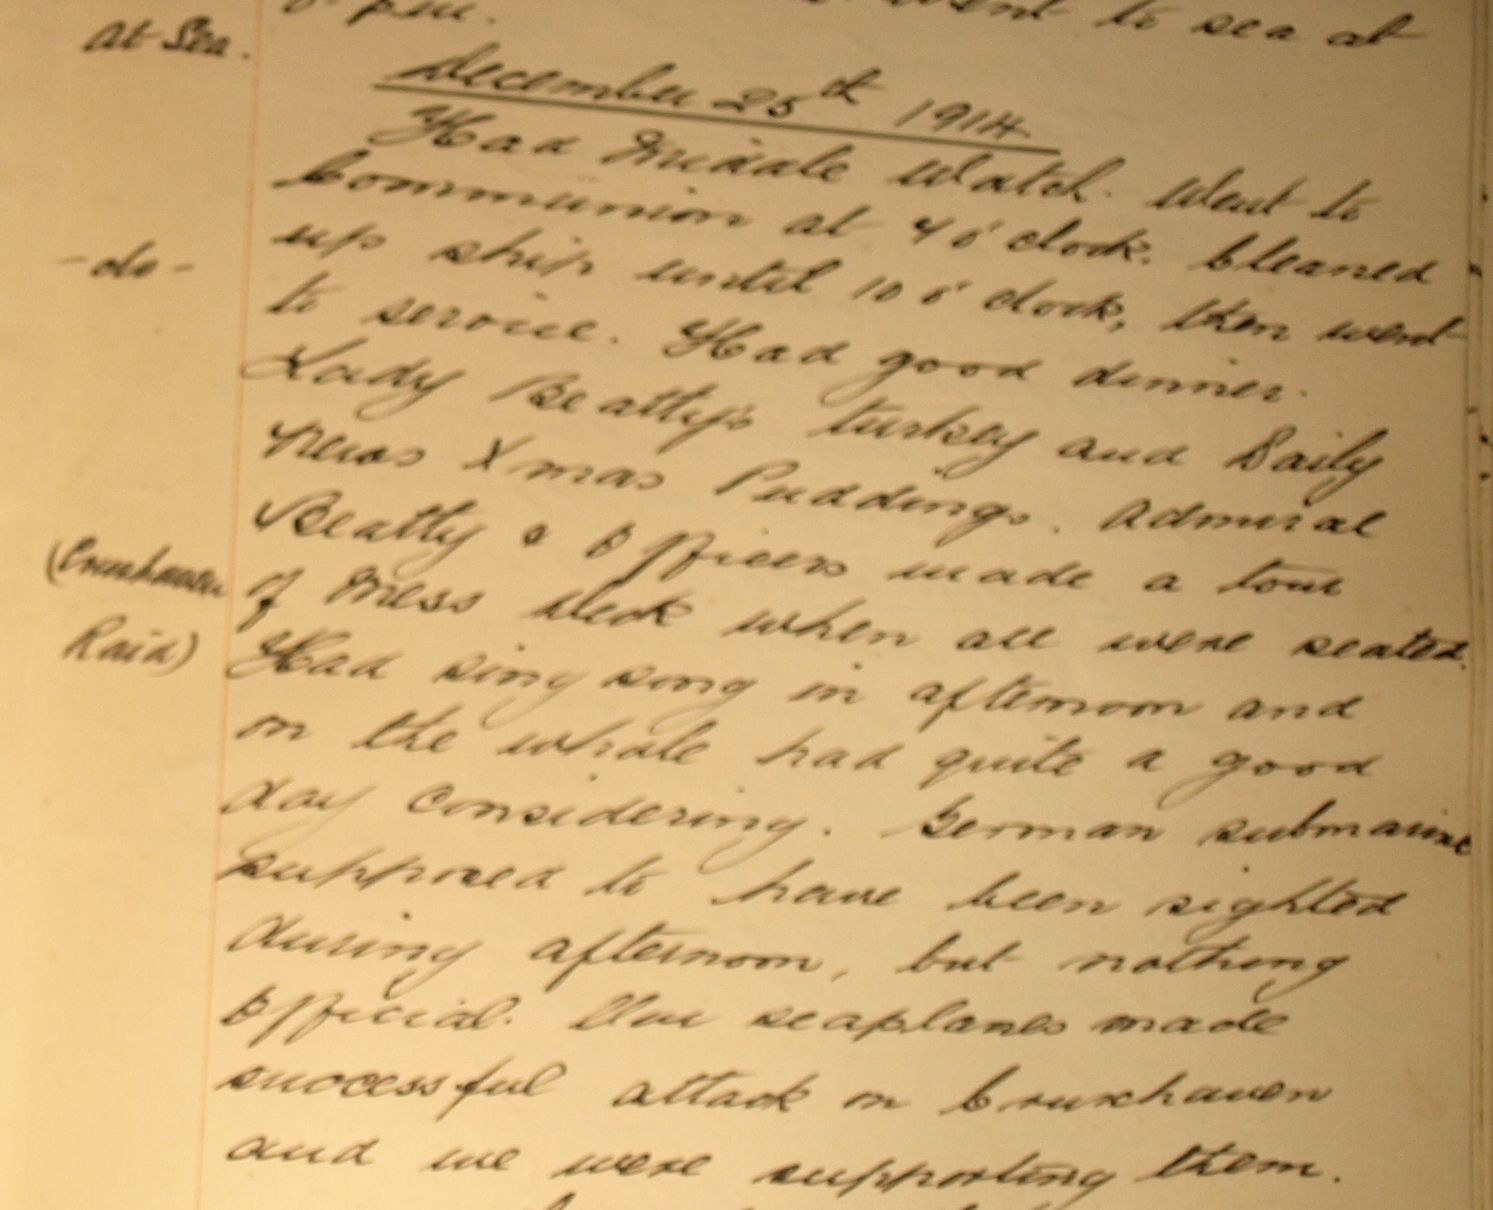 went to sea at
At Sea. 8. p.m.
December 25th 1914
Had Middle Watch. Went to
Communion at 7 o'clock. Cleaned
up ship until 10 o'clock, then went
- do -
to service. Had good dinner.
Lady Beatty's turkey and Daily
News Xmas Puddings. Admiral
Beatty & Officers made a tour
of Mess Deck when all were seated.
(Cruxhaven
Raid)
Had sing song in afternoon and
on the whole had quite a good
day considering. German submarine
supposed to have been sighted
during afternoon, but nothing
Official. Our seaplanes made
successful attack on Cruxhaven
and we were supporting them.